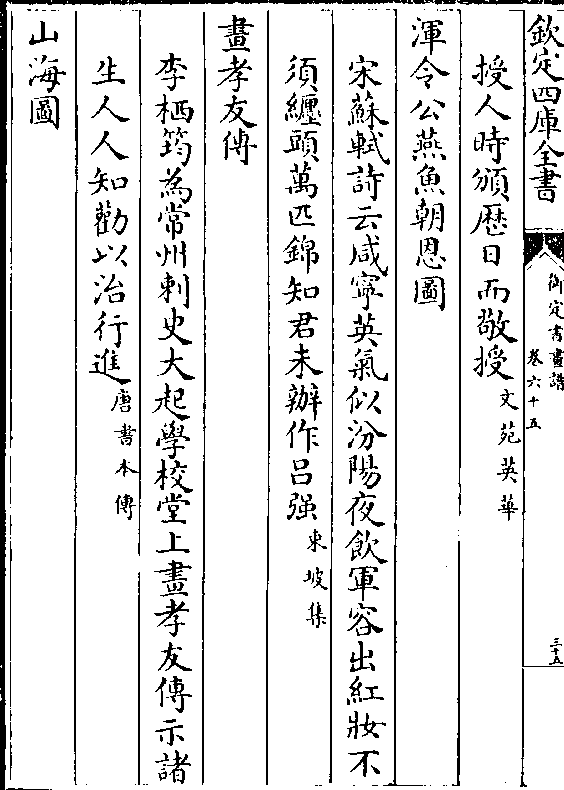 欽定四庫全書
御定書畫譜
卷六十五
三十五
授人時頒歴日而敬授文苑英華
渾令公燕魚朝恩圖
宋蘇軾詩云咸寧英氣似汾陽夜飲軍容出紅妝不
須纏頭萬匹錦知君未辦作呂强東坡集
畫孝友傳
李栖筠為常州刺史大起學校堂上畫孝友傳示諸
生人人知勸以治行進唐書本傳
山海圖